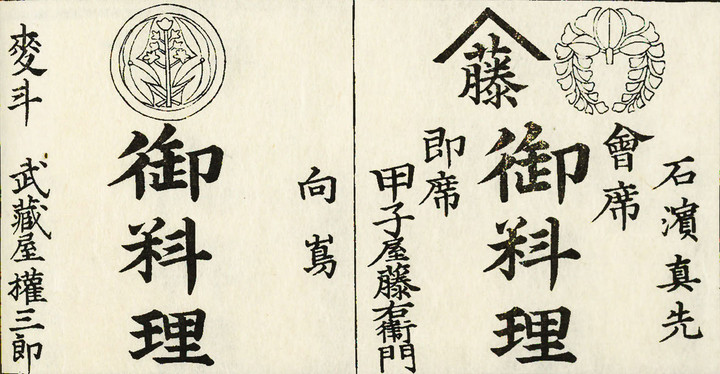 石濱真先
會席
御料理
即席
藤
甲子屋藤右衛門
向嶌
御料理
麥斗
武藏屋權三郎